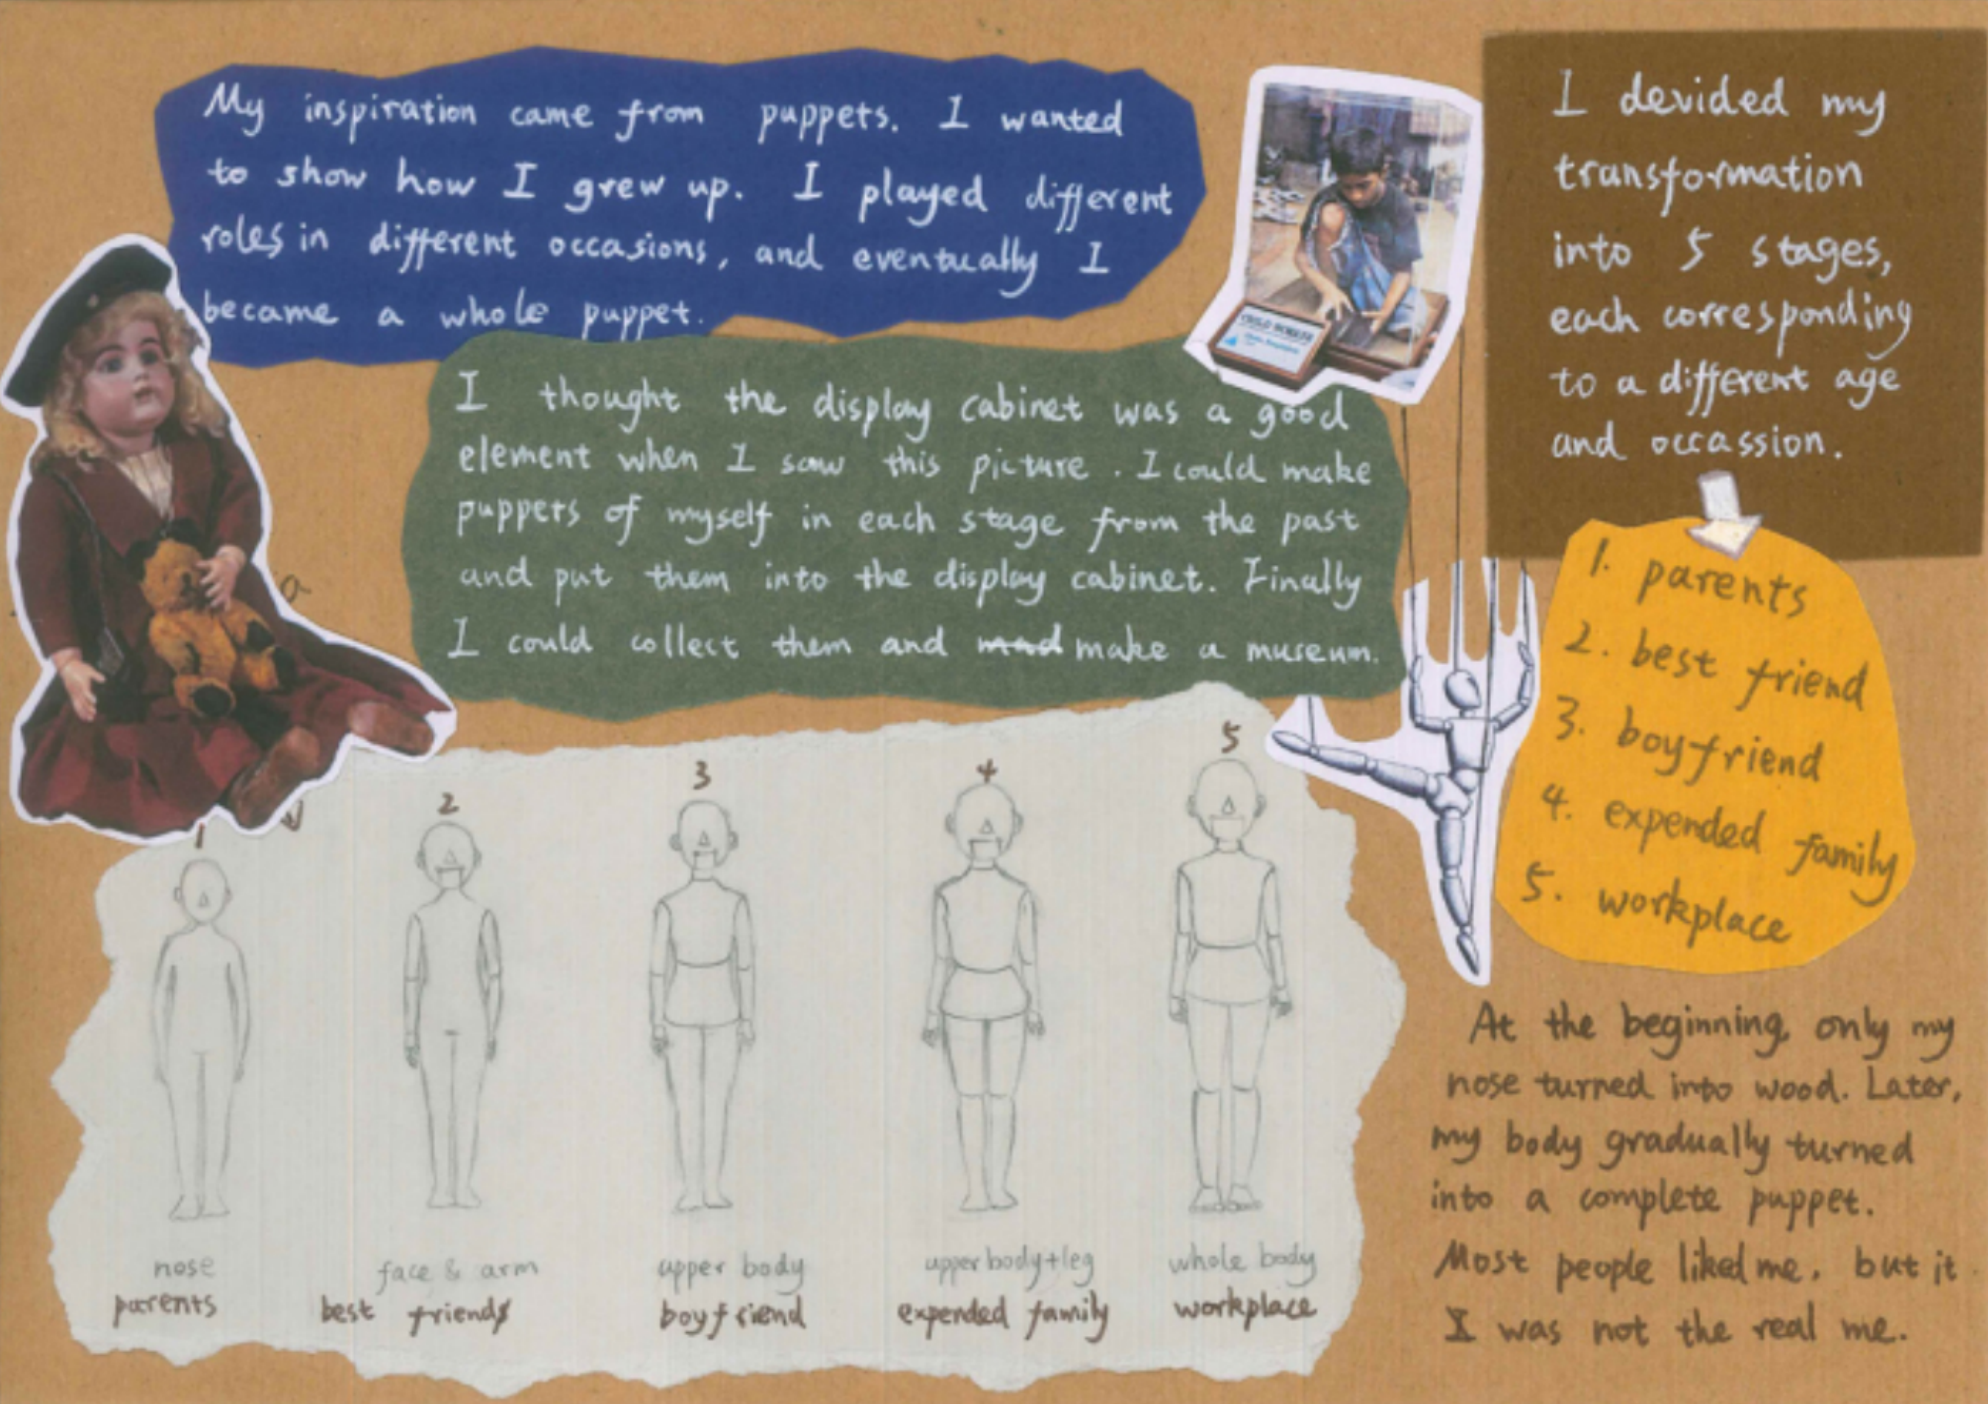 My inspiration came from puppets. I wanted
to show how I grew up. I played different
roles in different occasions, and eventually I
became a whole puppet.
I thought the display cabinet was a good
element when I saw this picture. I could make
puppets of myself in each stage from the past
and put them into the display cabinet. Finally
I could collect them and mad make a museum.
I devided my
transformation
into 5 stages,
each corresponding
to a different age
and occassion.
1. parents
2. best friend
3. boyfriend
4. expended family
5. workplace
1
2
3
4
5
nose
parents
face & arm
best friends
upper body
boyfriend
upper body+leg
expended family
whole body
workplace
At the beginning, only my
nose turned into wood. Later,
my body gradually turned
into a complete puppet.
Most people liked me. but it
I was not the real me.